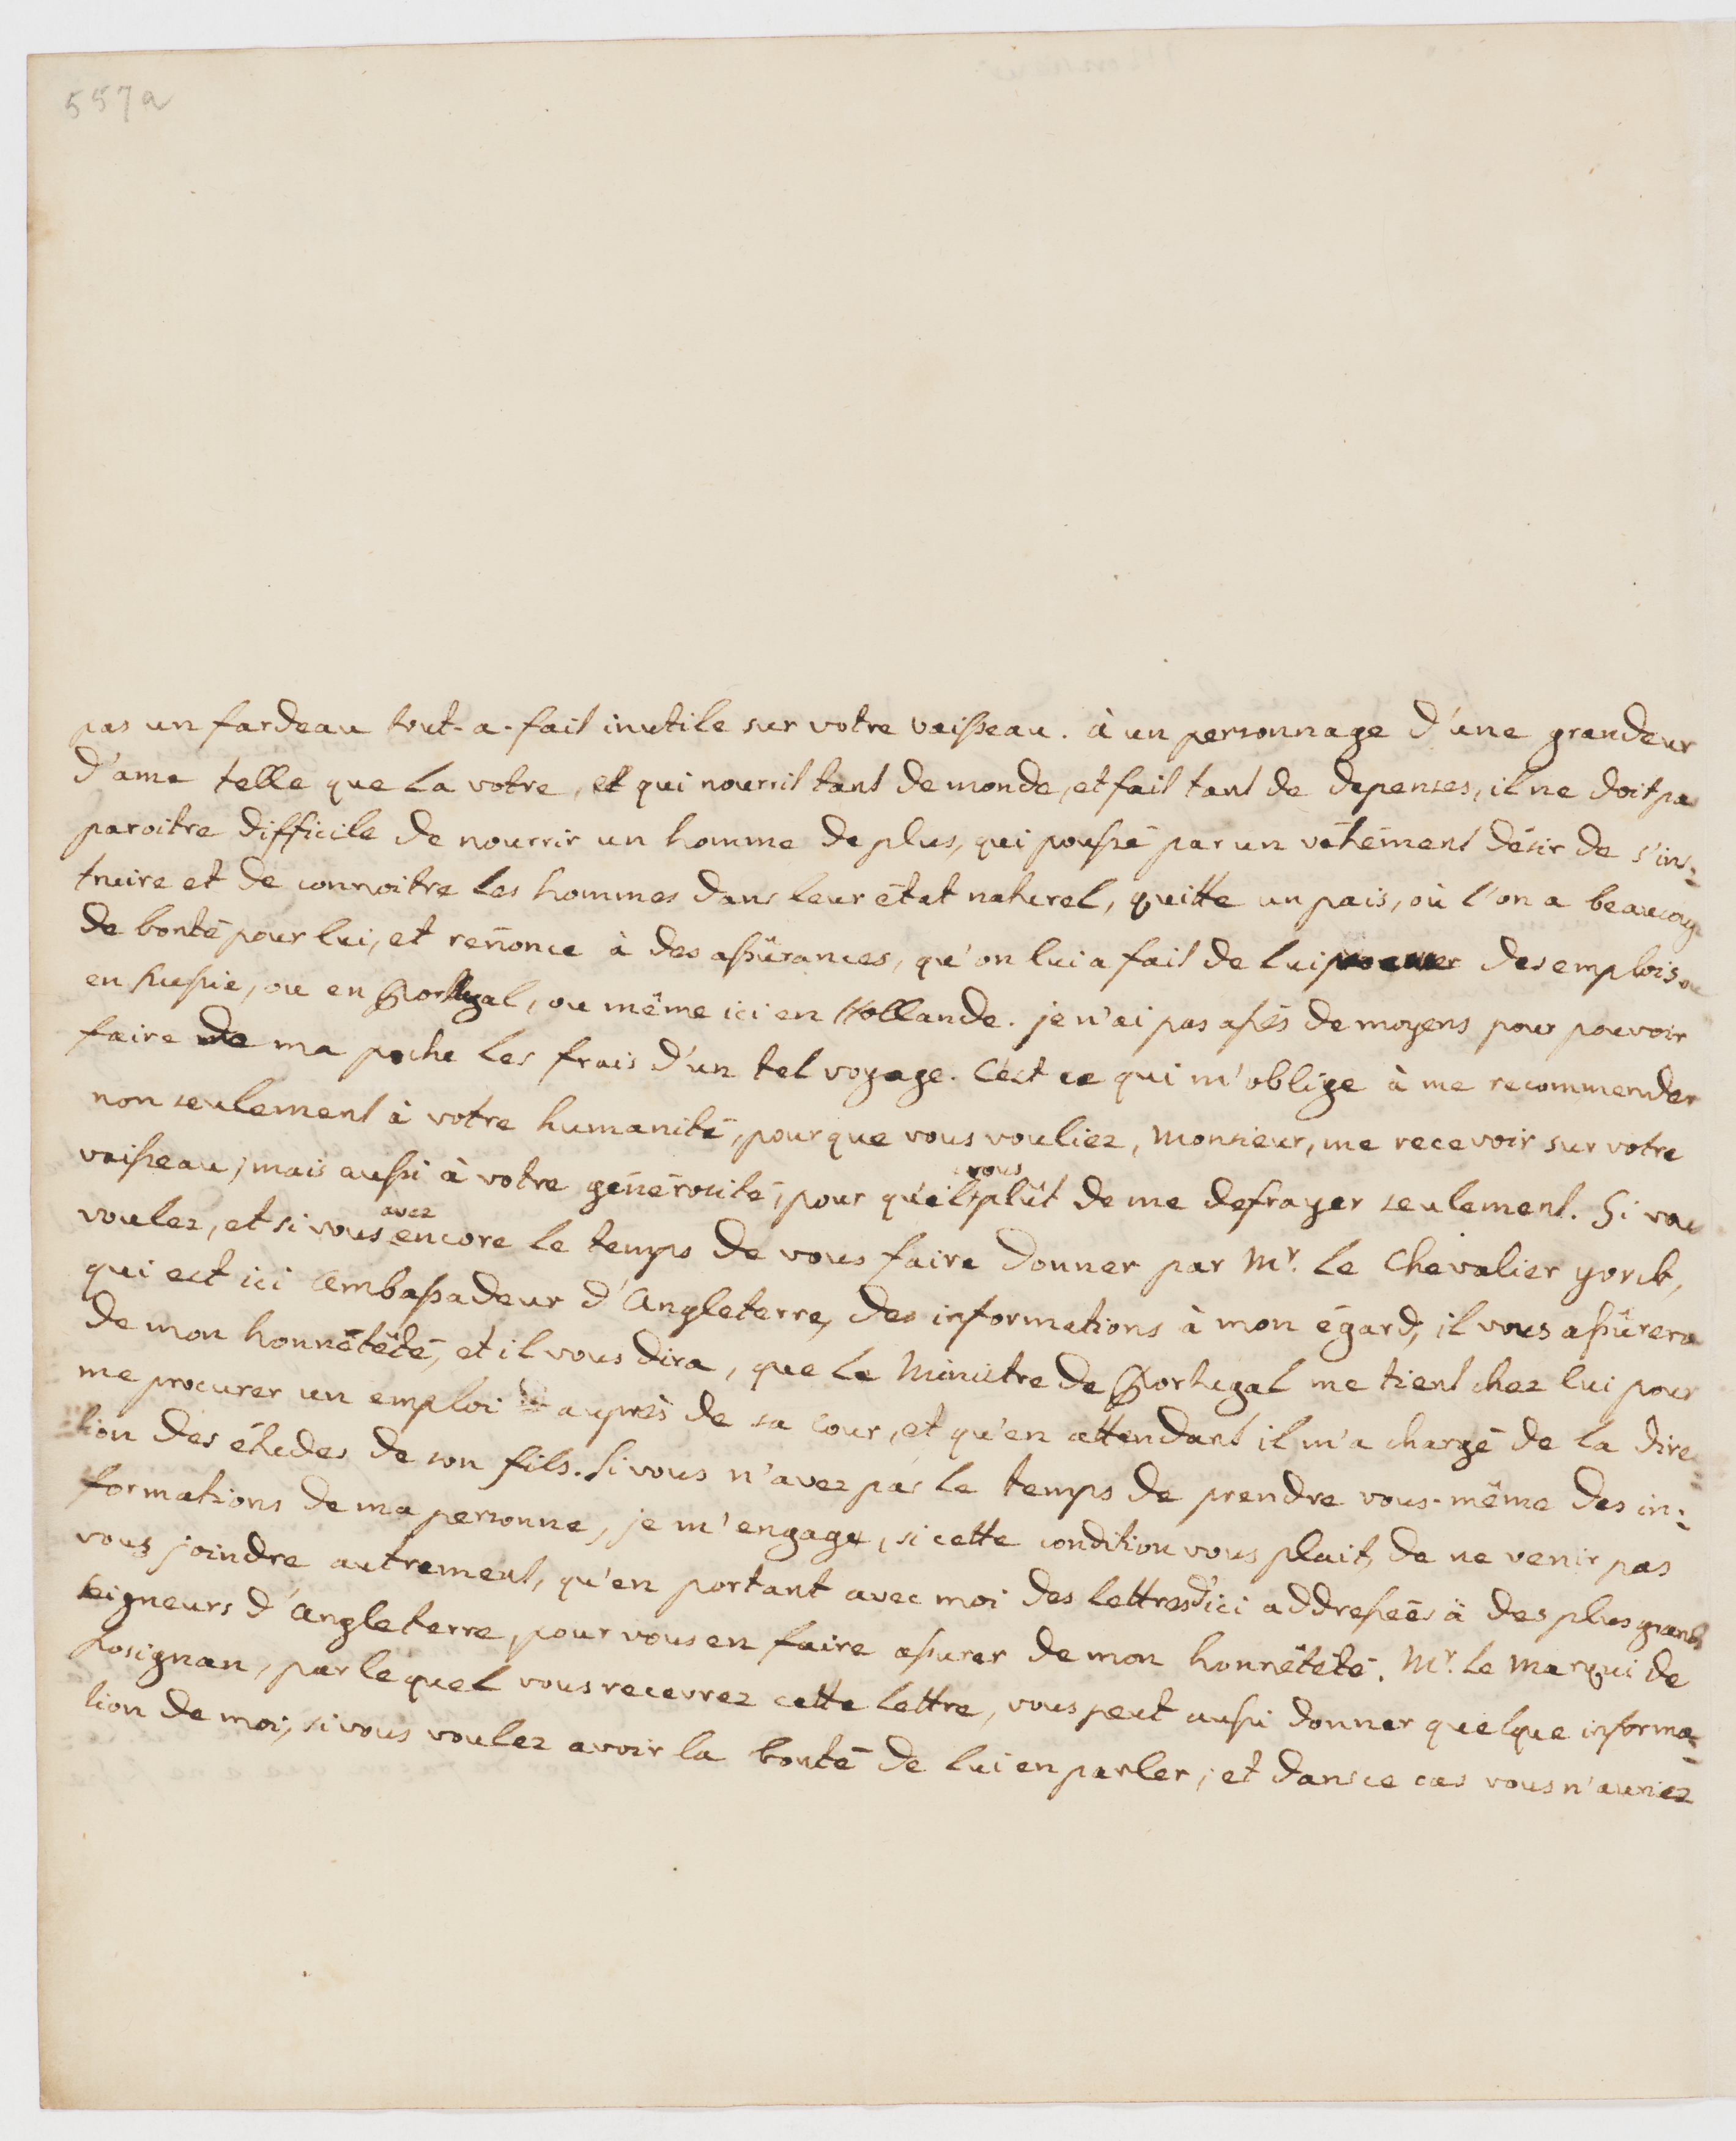 557a
pas un fardeau tout-a-fait inutile sur votre vaisseau. à un personnage d'une grandeur
d'ame telle que la votre, et qui nourrit tant de monde, et fait tant de depenses, il ne doit pas
paroitre difficile de nourrir un homme de plus, qui poussé par un véhément désir de s'ins:
truire et de connoitre les hommes dans leur état naturel, quitte un pais, où l'on a beaucoup
de bonté pour lui, et renonce à des assûrances, qu'on lui a fait de lui procurer des emplois ou
en Russie, ou en Portugal, ou même ici en Hollande. je n'ai pas assés de moyens pour pouvoir
faire de ma poche les frais d'un tel voyage. C'est ce qui m'oblige à me recommender
non seulement à votre humanité, pour que vous vouliez, Monsieur, me recevoir sur votre
vaisseau; mais aussi à votre générosité, pour qu'il vous plût de me defrayer seulement. Si vous
voulez, et si vous avez encore le temps de vous faire donner par Mr. le Chevalier yorck,
qui est ici Ambassadeur d'Angleterre, des informations à mon égard, il vous assûrera
de mon honnêtêté, et il vous dira, que le Ministre de Portugal me tient chez lui pour
me procurer un emploi auprès de sa Cour, et qu'en attendant il m'a chargé de la direc=
tion des études de son fils. Si vous n'avez pas le temps de prendre vous-même des in:
formations de ma personne, je m'engage, si cette condition vous plait, de ne venir pas
vous joindre autrement, qu'en portant avec moi des lettres d'ici addressées à des plus grands
seigneurs d'Angleterre, pour vous en faire assurer de mon honnêtêté. Mr. le Marqui de
Rosignan, par lequel vous recevrez cette lettre, vous peut aussi donner quelque informa=
tion de moi, si vous voulez avoir la bonté de lui en parler; et dans ce cas vous n'auriez